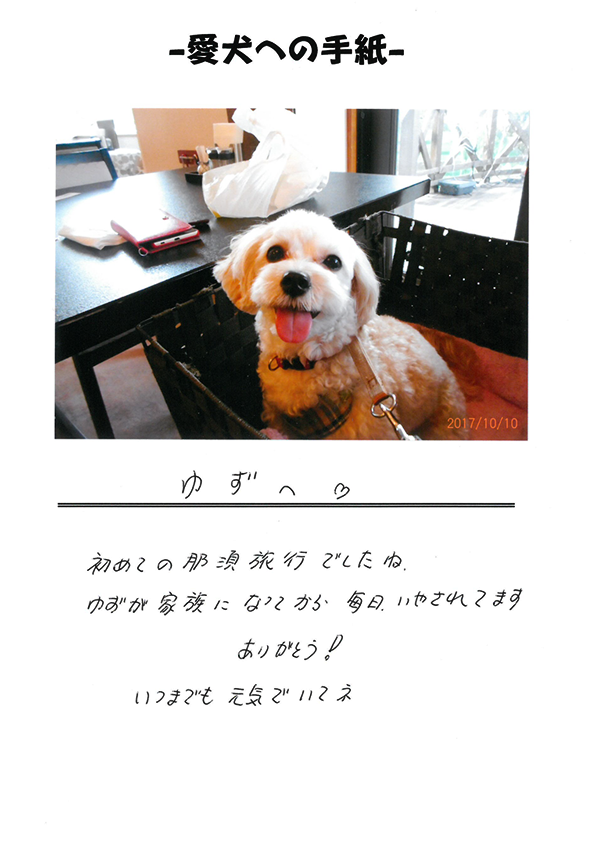 -愛犬への手紙-
2017/10/10
ゆずへ♡
初めての那須旅行でしたね.
ゆずが家族になってから 毎日.いやされてます
ありがとう!
いつまでも 元気で いてネ